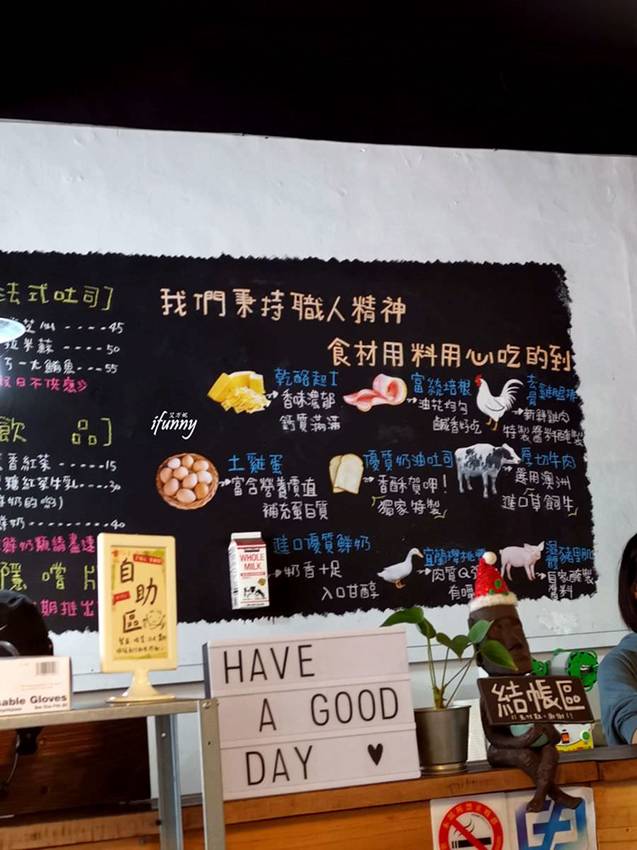 法式吐司]
45
拉米蘇 ----- 50
鮪魚 --- 55
假日不供應
飲 品]
香紅茶 ----- 15
糖紅茶牛乳 --- 30
鮮奶 ------ 40
鮮奶類請盡速
隱 嚐
期推出
我們秉持職人精神
食材用料用心吃的到
乾酪起工
香味濃郁
鈣質滿滿
富統培根
油花均勻
鹹香好吃
去骨雞腿排
新鮮雞肉
特製醬料醃製
土雞蛋
富含營養價值
補充蛋白質
優質奶油吐司
香酥質呷!
獨家特製
厚切牛肉
選用澳洲
進口草飼牛
進口優質鮮奶
奶香十足
入口甘醇
WHOLE
MILK
宜蘭櫻桃鴨
肉質Q
有嚼
ifunny
自助區
sable Gloves
HAVE
A GOOD
DAY ♥
結帳區